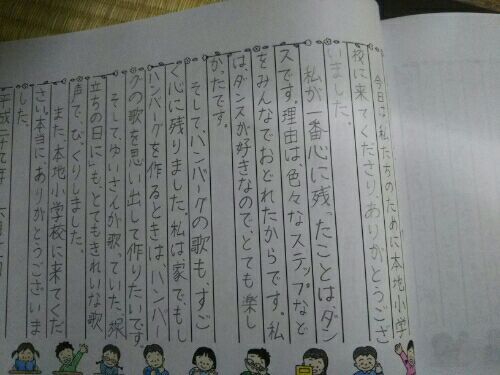 今日は、私たちのために、本地小学
校に来てくださり、ありがとうござ
いました。
私が一番心に残ったことは、ダン
スです。理由は、色々なステップなど
をみんなでおどれたからです。私
は、ダンスが好きなので、とても楽し
かったです。
そして、ハンバーグの歌も、すご
く心に残りました。私は、家で、もし
ハンバーグを作るときは、ハンバー
グの歌を思い出して作りたいです。
そして、ゆいさんが歌っていた、旅
立ちの日に」も、とてもきれいな歌
声で、びっくりしました。
また、本地小学校に来てくだ
さい。本当に、ありがとうございま
した。
平成二十七年